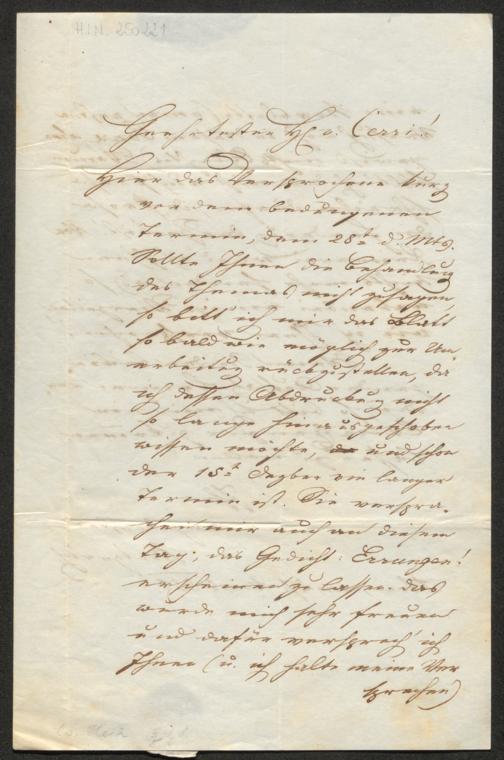 H.I.N. 250221
Geehrtester H. v. Cerri!
Hier das Versprochene kurz
vor dem bedungenen
Termin, dem 28t d. Mts.
Sollte Ihnen die Behandlung
des Themas nicht zusagen
so bitt' ich mir das Blatt
so bald wie möglich zur Um-
arbeitung rückzustellen, da
ich dessen Abdruckung nicht
so lange hinausgeschoben
wissen möchte, und schon
der 15t Dezber ein langer
Termin ist. Sie verspra-
chen mir auch an diesem
Tag, das Gedicht: Errungen!
erscheinen zu lassen. Das
würde mich sehr freuen
und dafür versprech' ich
Ihnen (u. ich halte meine Ver
sprechen)